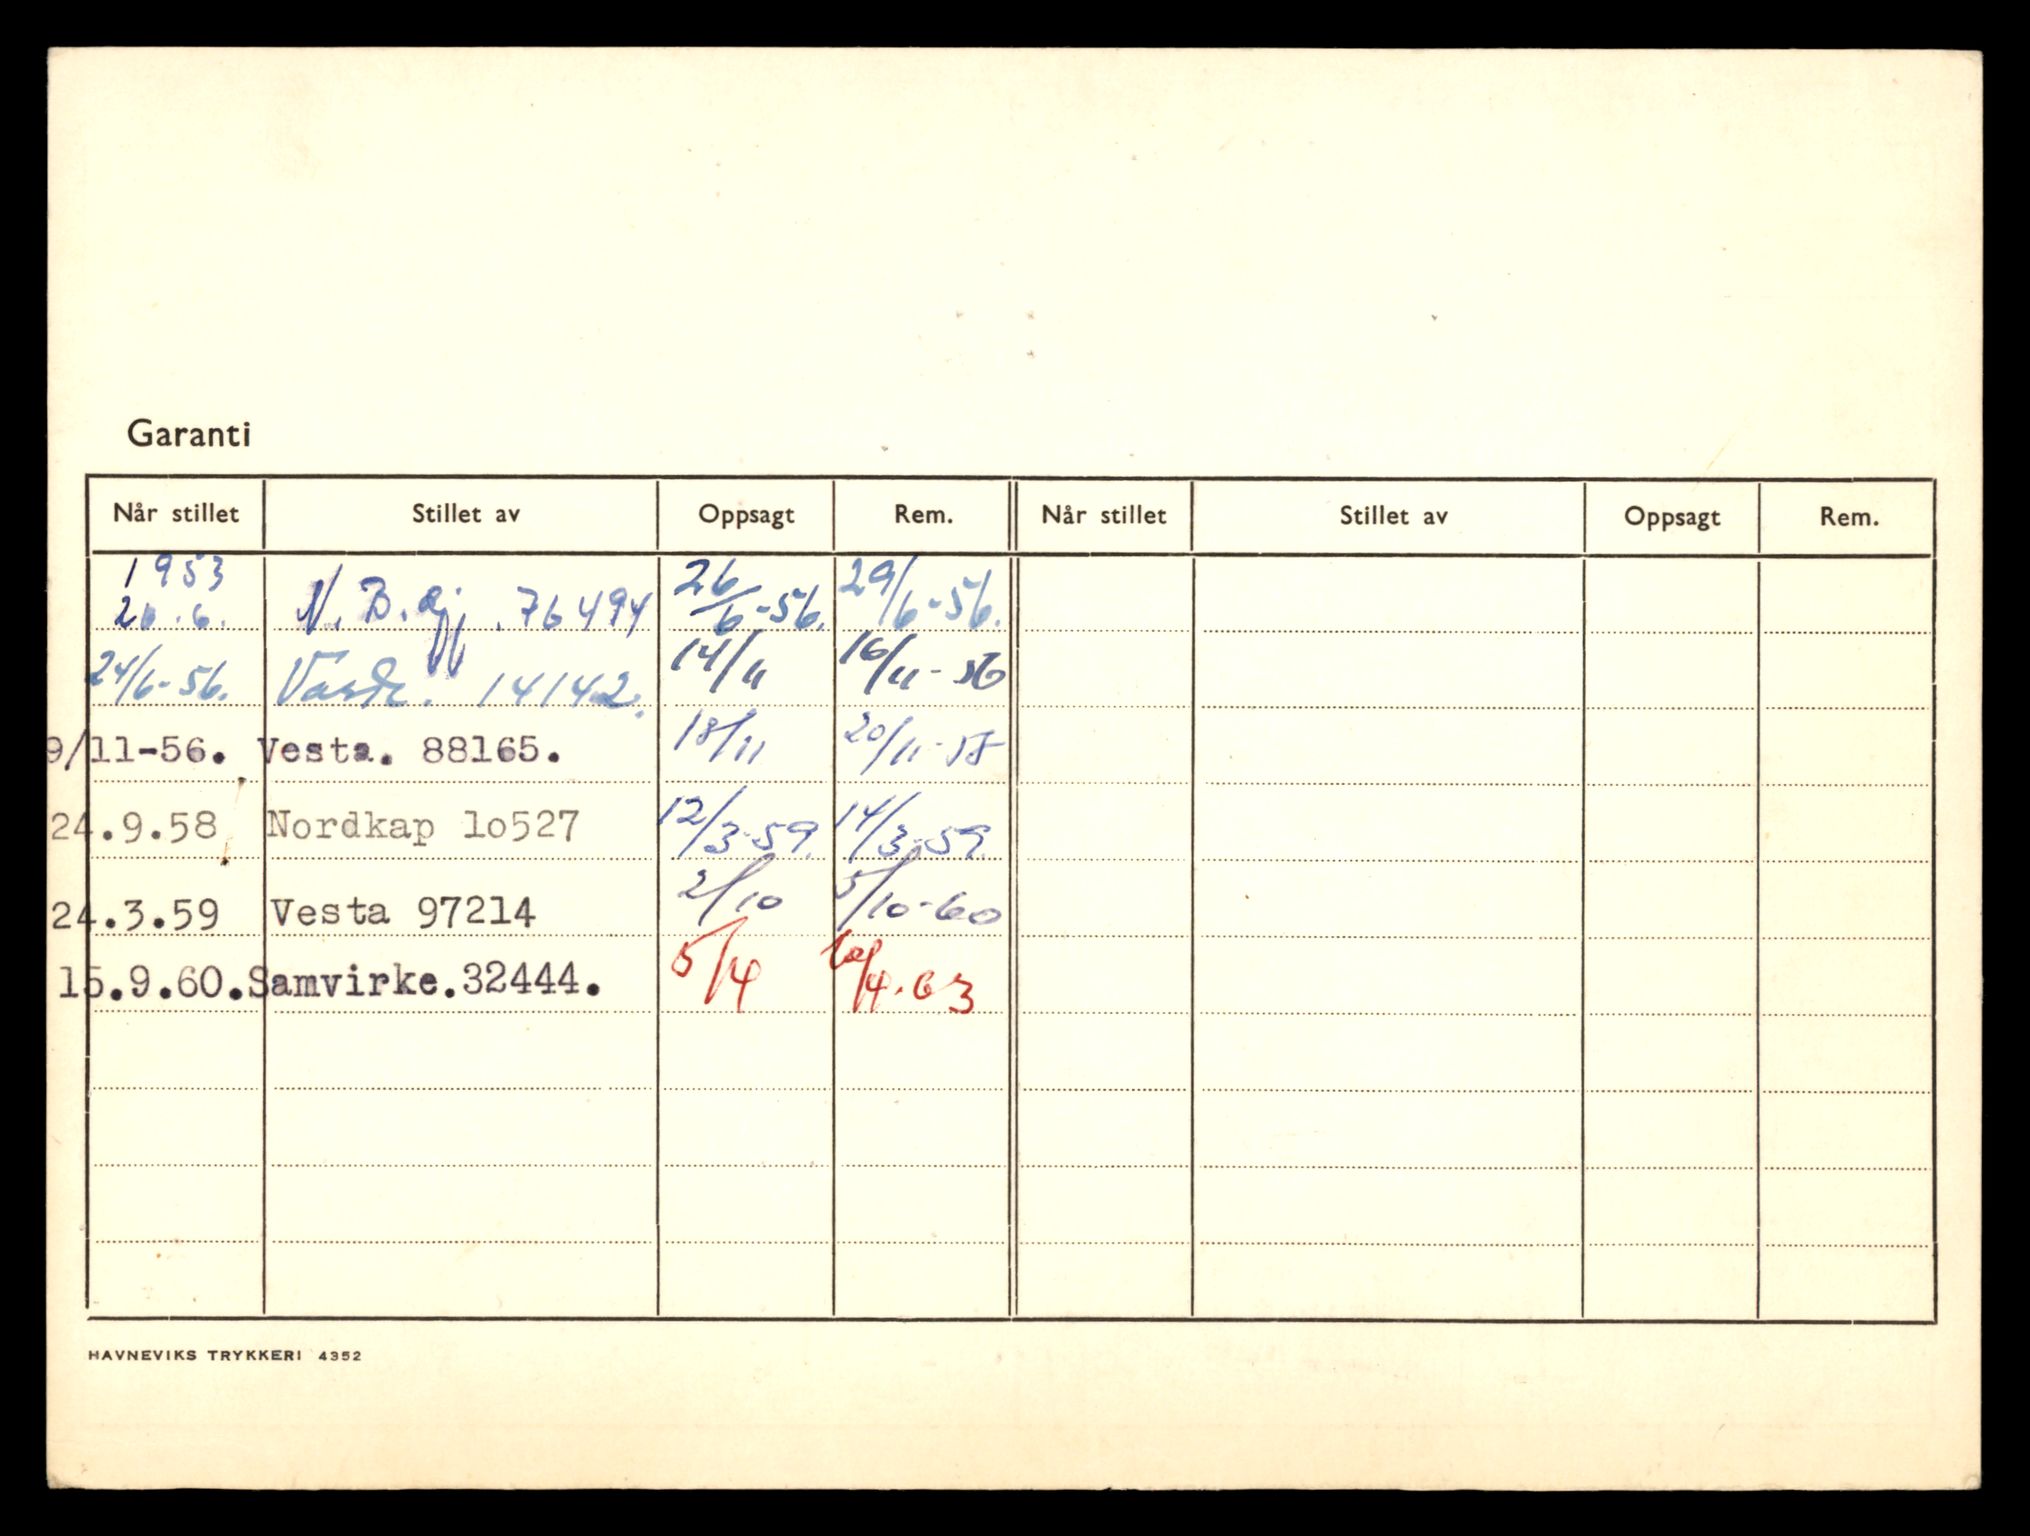 Garanti
Når stillet Stillet av Oppsagt Rem. Når stillet Stillet av Oppsagt Rem.
1953
26.6. N. B. 76494 26/6-56. 29/6-56.
24/6-56. 14142. 14/11 16/11-56
9/11-56. Vesta. 88165. 18/11 20/11-58
24.9.58 Nordkap lo527 12/3-59. 14/3-59.
24.3.59 Vesta 97214 2/10 5/10-60
15.9.60. Samvirke. 32444. 5/4 /4.63
HAVNEVIKS TRYKKERI 4352